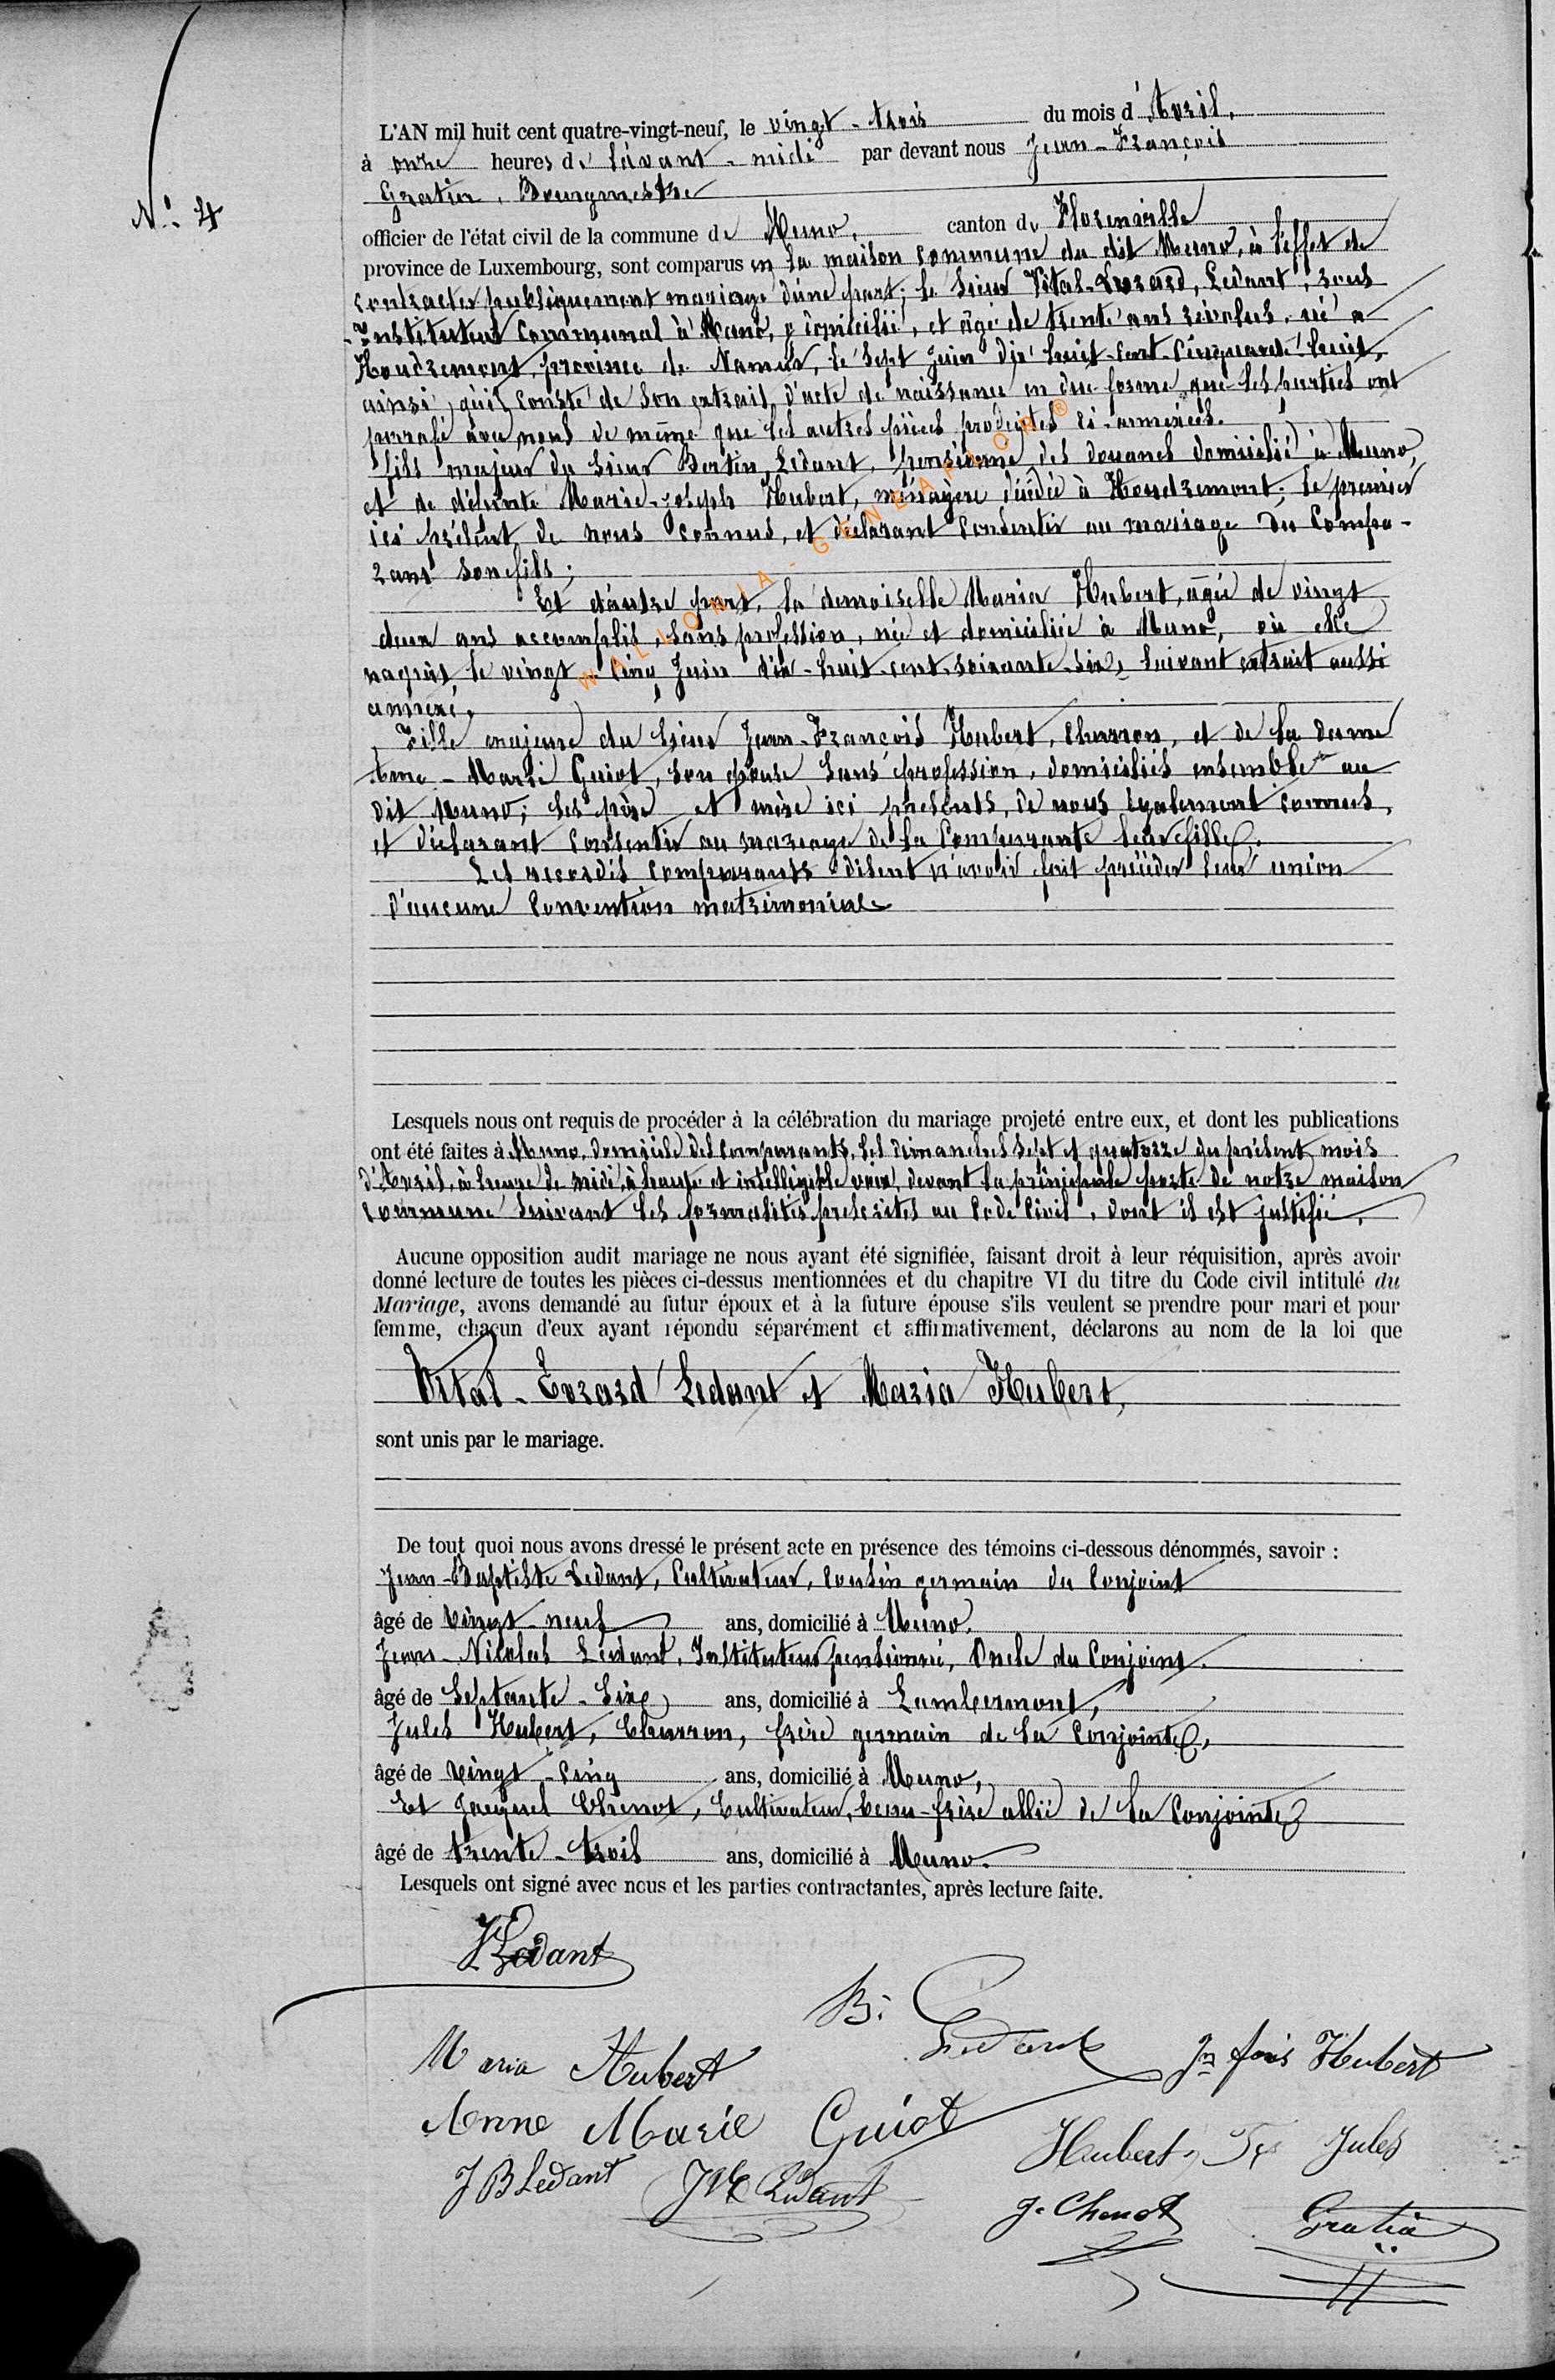 N.º 4
L'AN mil huit cent quatre-vingt-neuf, le vingt-trois du mois d'Avril,
à onze heures de l'avant-midi par devant nous Jean-François
Gratia, Bourgmestre
officier de l'état civil de la commune de Muno, canton de Florenville
province de Luxembourg, sont comparus en la maison commune du dit Muno, à l'effet de
contracter publiquement mariage d'une part; le sieur Vital-Evrard, Ledant, sous
Instituteur communal à Muno, y domicilié, et âgé de trente ans révolus, né à
Houdremont, province de Namur, le sept Juin dix huit-cent-cinquante-huit,
ainsi qu'il conste de son extrait d'acte de naissance en due forme que les parties ont
parafé avec nous de même que les autres pièces produites ci-annexées.
fils majeur du sieur Bertin, Ledant, pensionné des douanes domicilié à Muno,
et de défunte Marie-Joseph Hubert, ménagère décédée à Houdremont; le premier
ici présent, de nous connus, et déclarant consentir au mariage du compa-
rant son fils;
Et d'autre part, la demoiselle Maria Hubert, agée de vingt
deux ans accomplis, sans profession, née et domiciliée à Muno, où elle
naquit, le vingt-cinq Juin dix-huit-cent-soixante-six, suivant extrait aussi
annexé,
Fille majeure du sieur Jean-François Hubert, charron, et de la dame
Anne-Marie Guiot, son épouse sans profession, domiciliés ensemble au
dit Muno; ses père et mère ici présents, de nous également connus,
et déclarant consentir au mariage de la comparante leur fille.
Les susdits comparants disent n'avoir fait précéder leur union
d'aucune convention matrimoniale
Lesquels nous ont requis de procéder à la célébration du mariage projeté entre eux, et dont les publications
ont été faites à Muno, domicile des comparants, les dimanches sept et quatorze du présent mois
d'Avril, à heure de midi, à haute et intelligible voix, devant la principale porte de notre maison
commune suivant les formalités prescrites au Code Civil, dont il est justifié,
Aucune opposition audit mariage ne nous ayant été signifiée, faisant droit à leur réquisition, après avoir
donné lecture de toutes les pièces ci-dessus mentionnées et du chapitre VI du titre du Code civil intitulé du
Mariage, avons demandé au futur époux et à la future épouse s'ils veulent se prendre pour mari et pour
femme, chacun d'eux ayant répondu séparément et affirmativement, déclarons au nom de la loi que
Vital-Evrard Ledant et Maria Hubert,
sont unis par le mariage.
De tout quoi nous avons dressé le présent acte en présence des témoins ci-dessous dénommés, savoir :
Jean-Baptiste Ledant, Cultivateur, cousin germain du conjoint
âgé de vingt-neuf ans, domicilié à Muno.
Jean-Nicolas Ledant, Instituteur pensionné, Oncle du Conjoint.
âgé de septante-six ans, domicilié à Lambermont,
Jules Hubert, Charron, frère germain de la conjointe,
âgé de vingt-cinq ans, domicilié à Muno,
Et Jacques Chenot, Cultivateur, beau-frère allié de la conjointe
âgé de trente-trois ans, domicilié à Muno.
Lesquels ont signé avec nous et les parties contractantes, après lecture faite.
VLedant
B. Ledant
Maria Hubert
Jn fois Hubert
Anne Marie Guiot
Hubert Jules
J B Ledant
JN Ledant
J. Chenot
Gratia
WALLONIA-GENEALOR®